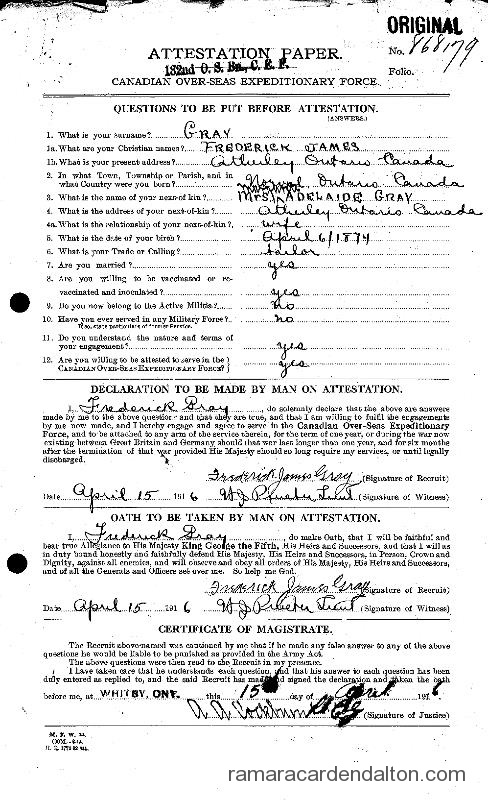 ORIGINAL
ATTESTATION PAPER.
No. 868179
132nd O. S. Bn., C. E. F.
Folio.
CANADIAN OVER-SEAS EXPEDITIONARY FORCE.
QUESTIONS TO BE PUT BEFORE ATTESTATION.
(ANSWERS.)
1. What is your surname? GRAY
1a. What are your Christian names? FREDERICK JAMES
1b. What is your present address? Atherley Ontario Canada
2. In what Town, Township or Parish, and in
what Country were you born? Ontario Canada
3. What is the name of your next-of-kin? MRS. ADELAIDE GRAY
4. What is the address of your next-of-kin? Atherley Ontario Canada
4a. What is the relationship of your next-of-kin? wife
5. What is the date of your birth? April 6/1874
6. What is your Trade or Calling? tailor
7. Are you married? yes
8. Are you willing to be vaccinated or re-
vaccinated and inoculated? yes
9. Do you now belong to the Active Militia? no
10. Have you ever served in any Military Force? no
If so, state particulars of former Service.
11. Do you understand the nature and terms of
your engagement? yes
12. Are you willing to be attested to serve in the
CANADIAN OVER-SEAS EXPEDITIONARY FORCE? yes
DECLARATION TO BE MADE BY MAN ON ATTESTATION.
I, Frederick Gray, do solemnly declare that the above are answers
made by me to the above questions and that they are true, and that I am willing to fulfil the engagements
by me now made, and I hereby engage and agree to serve in the Canadian Over-Seas Expeditionary
Force, and to be attached to any arm of the service therein, for the term of one year, or during the war now
existing between Great Britain and Germany should that war last longer than one year, and for six months
after the termination of that war provided His Majesty should so long require my services, or until legally
discharged.
Frederick James Gray (Signature of Recruit)
Date April 15 1916 Lieut (Signature of Witness)
OATH TO BE TAKEN BY MAN ON ATTESTATION.
I, Frederick Gray, do make Oath, that I will be faithful and
bear true Allegiance to His Majesty King George the Fifth, His Heirs and Successors, and that I will as
in duty bound honestly and faithfully defend His Majesty, His Heirs and Successors, in Person, Crown and
Dignity, against all enemies, and will observe and obey all orders of His Majesty, His Heirs and Successors,
and of all the Generals and Officers set over me. So help me God.
Frederick James Gray (Signature of Recruit)
Date April 15 1916 Lieut (Signature of Witness)
CERTIFICATE OF MAGISTRATE.
The Recruit above-named was cautioned by me that if he made any false answer to any of the above
questions he would be liable to be punished as provided in the Army Act.
The above questions were then read to the Recruit in my presence.
I have taken care that he understands each question, and that his answer to each question has been
duly entered as replied to, and the said Recruit has made and signed the declaration and taken the oath
before me, at WHITBY, ONT. this 15 day of April 1916
(Signature of Justice)
M. F. W. 23.
ramaracardendalton.com